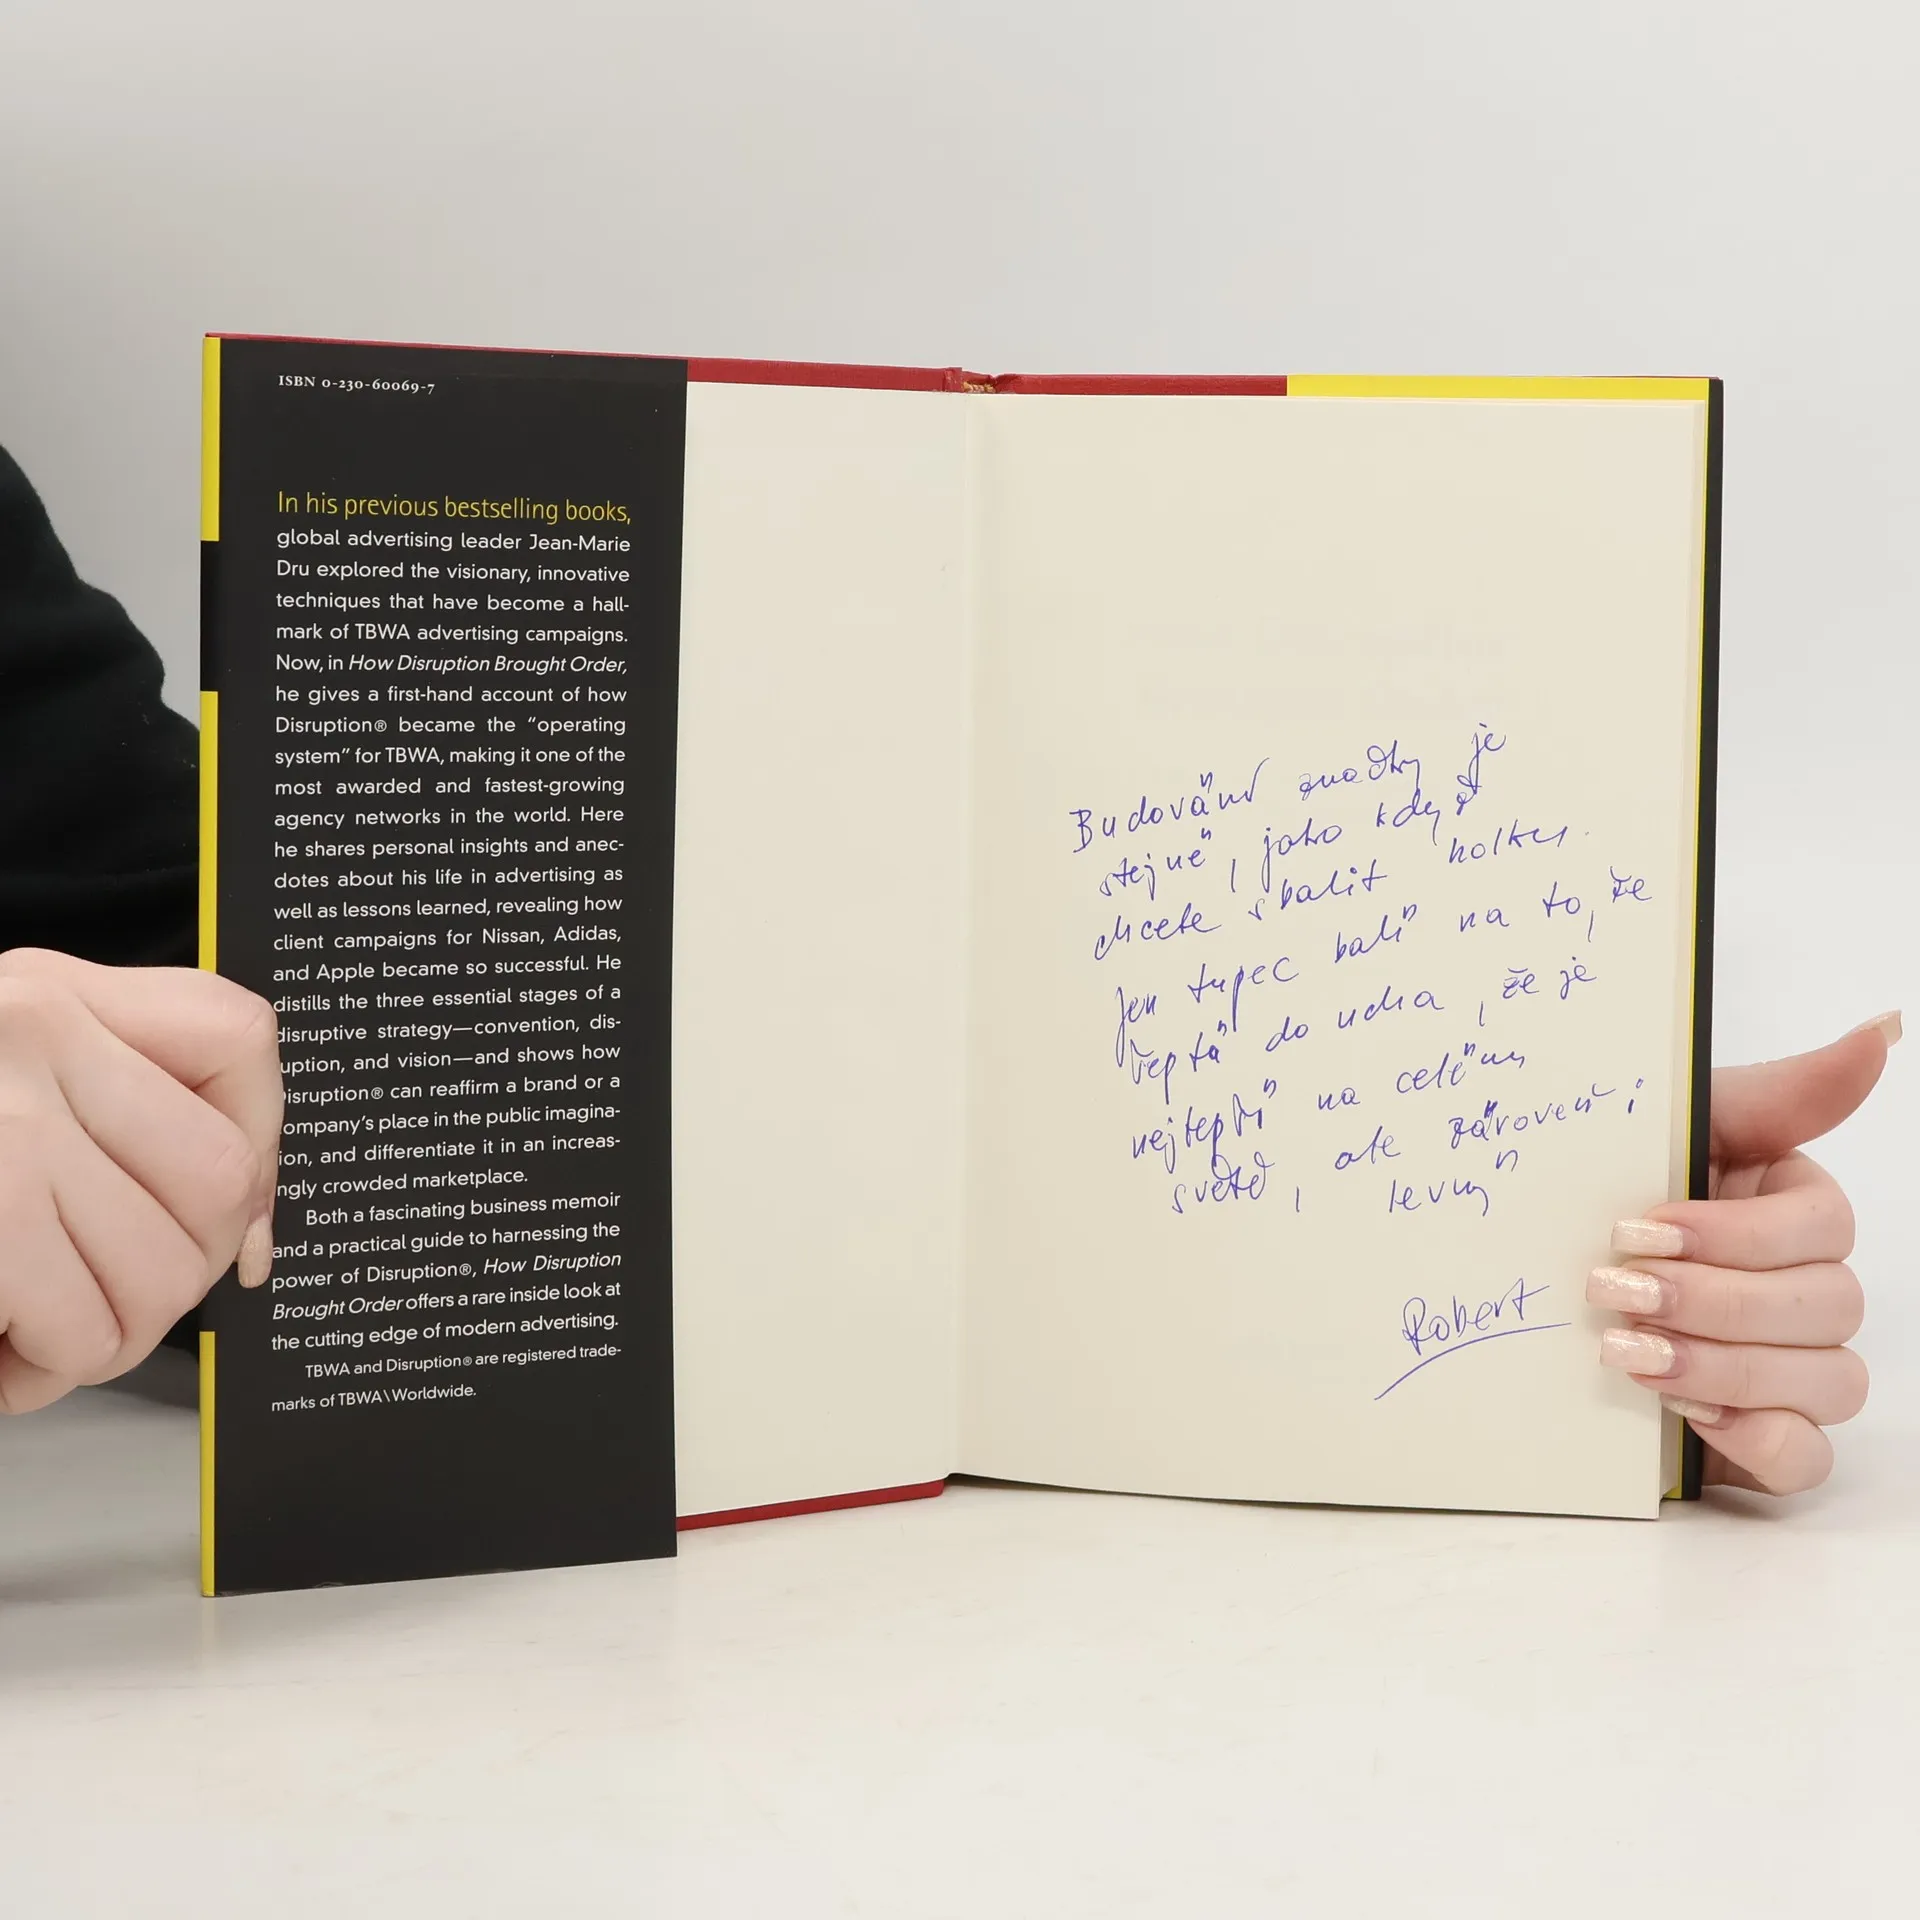 ISBN 0-230-60069-7
In his previous bestselling books,
global advertising leader Jean-Marie
Dru explored the visionary, innovative
techniques that have become a hall-
mark of TBWA advertising campaigns.
Now, in How Disruption Brought Order,
he gives a first-hand account of how
Disruption® became the “operating
system” for TBWA, making it one of the
most awarded and fastest-growing
agency networks in the world. Here
he shares personal insights and anec-
dotes about his life in advertising as
well as lessons learned, revealing how
client campaigns for Nissan, Adidas,
and Apple became so successful. He
distills the three essential stages of a
disruptive strategy—convention, dis-
uption, and vision—and shows how
isruption® can reaffirm a brand or a
ompany’s place in the public imagina-
ion, and differentiate it in an increas-
ngly crowded marketplace.
Both a fascinating business memoir
and a practical guide to harnessing the
power of Disruption®, How Disruption
Brought Order offers a rare inside look at
the cutting edge of modern advertising.
TBWA and Disruption® are registered trade-
marks of TBWA\Worldwide.
Budování značky je
stejné, jako když
chcete sbalit holku.
Jen tupec balí na to, že
šeptá do ucha, že je
nejlepší na celém
světě, ale zároveň i
levný
Robert